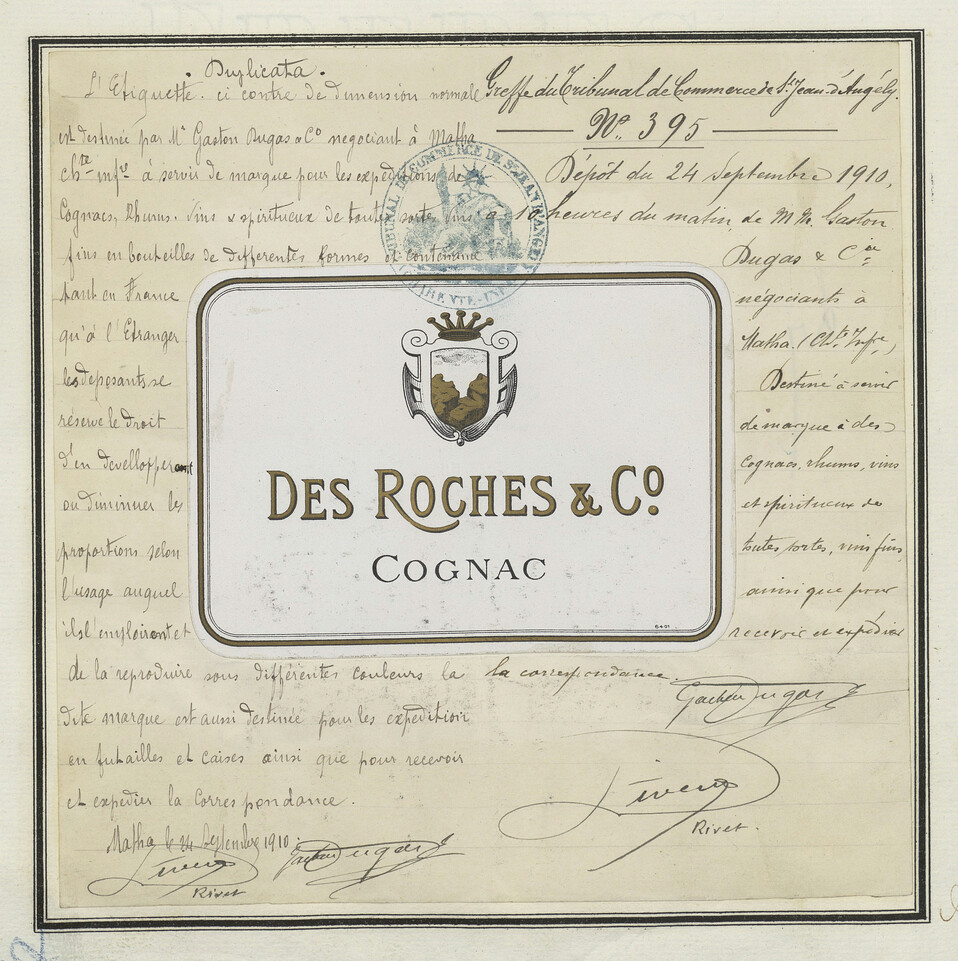 Duplicata.
L'Etiquette. ci contre de dimension normale
est destinée par Mr Gaston Dugas & Co negociant à Matha
Chte Infre à servir de marque pour les expéditions de
Cognacs, Rhums. Vins & spiritueux de toutes sortes, vins
fins en bouteilles de differentes formes et contenance
tant en France
qu'à l'Etranger
les deposants se
réserve le droit
d'en devellopper ont
ou diminuer les
proportions selon
l'usage auquel
ils l'emploiront et
de la reproduire sous différentes couleurs la
dite marque est aussi destinée pour les expedition
en futailles et caises ainsi que pour recevoir
et expedier la Correspondance.
Matha le 24 Septembre 1910
Gaston Dugas
Rivet
Greffe du Tribunal de Commerce de St Jean-d'Angély.
No. 395
Dépôt du 24 Septembre 1910,
à 10 heures du matin, de M M. Gaston
Dugas & Cie
négociants à
Matha. (Chte Infre)
Destiné à servir
de marque à des
cognacs, rhums, vins
et spiritueux de
toutes sortes, vins fins,
ainsi que pour
recevoir et expédier
la correspondance.
Gaston Dugas
Rivet.
TRIBUNAL DE COMMERCE DE ST JEAN D'ANGELY
CHARENTE-INF
DES ROCHES & CO.
COGNAC